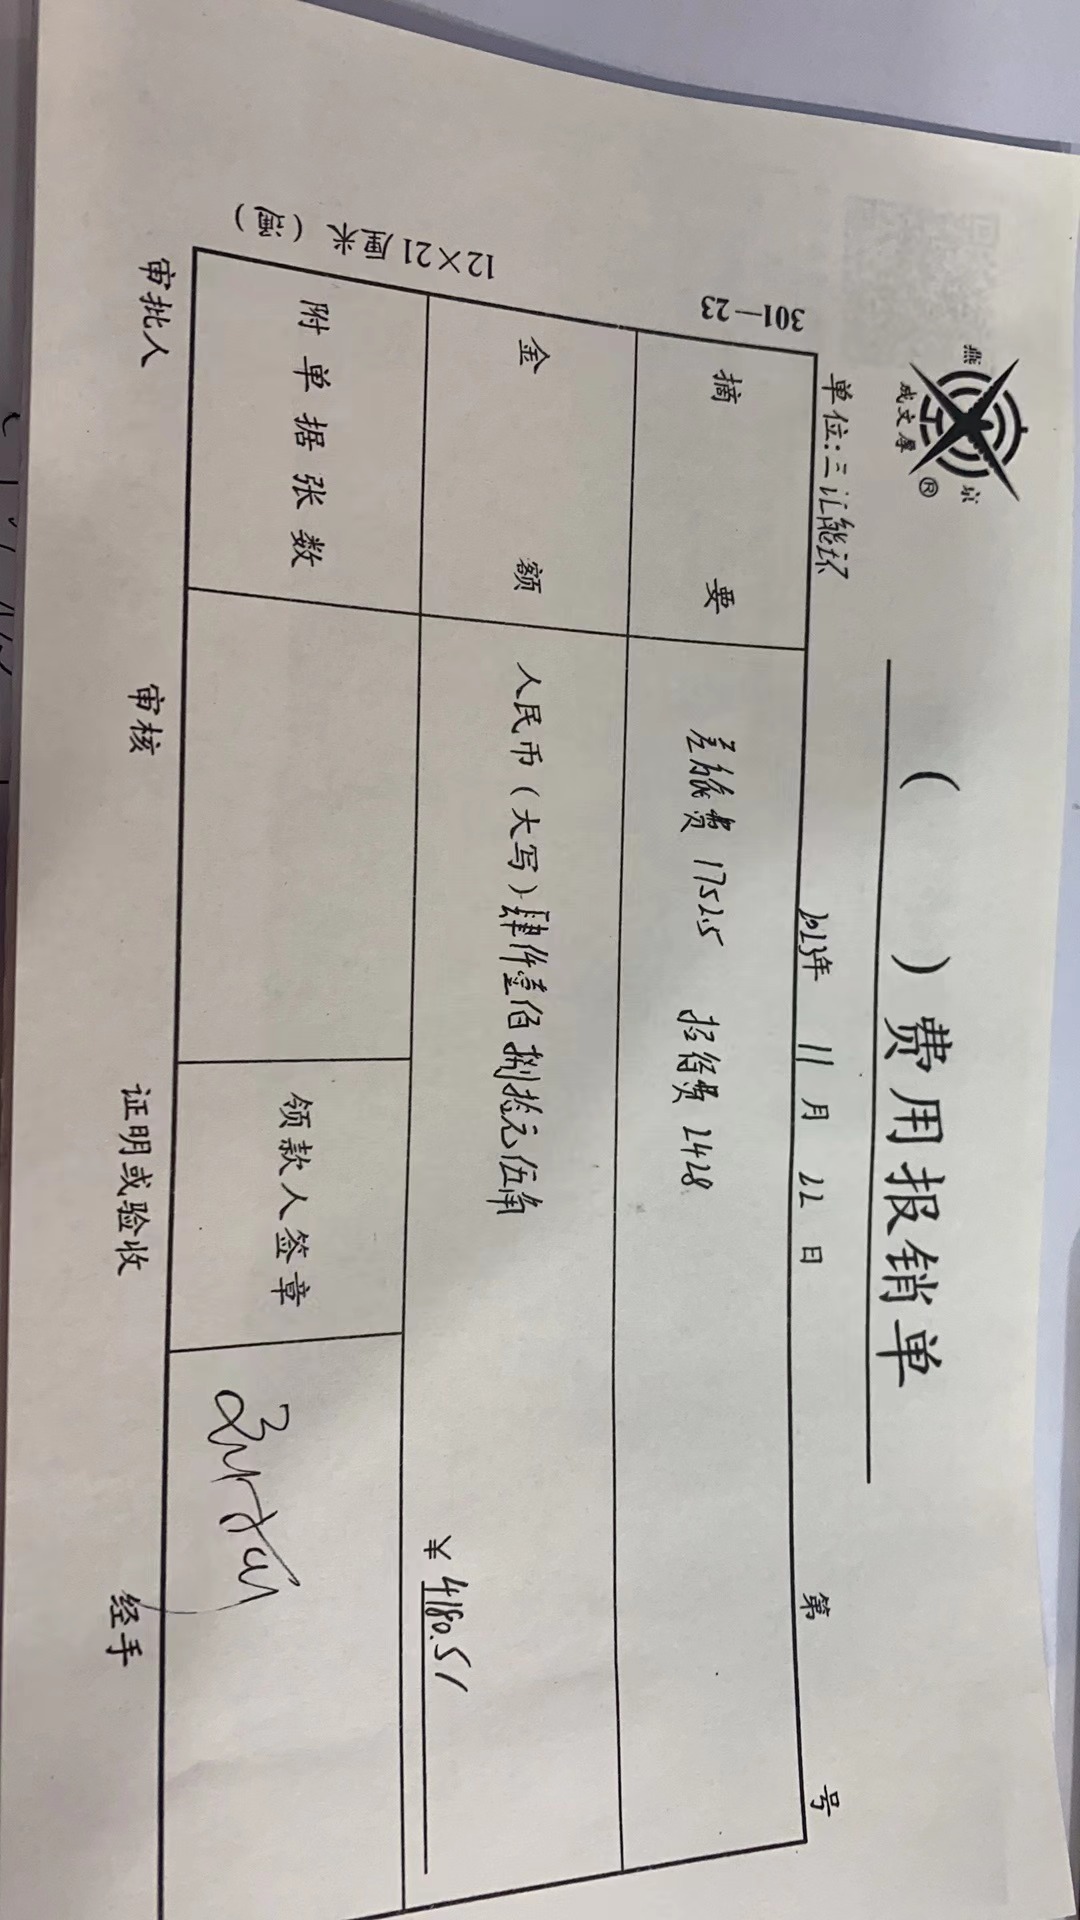 燕京
成文厚
®
（ ）费用报销单
单位:三汇能环 2023年 11月 22日 第 号
摘要 差旅费 1752.5 招待费 2428
金额 人民币（大写）肆仟壹佰捌拾元伍角
¥ 4180.5/
附单据张数 领款人签章
审批人 审核 证明或验收 经手
301—23
12×21厘米